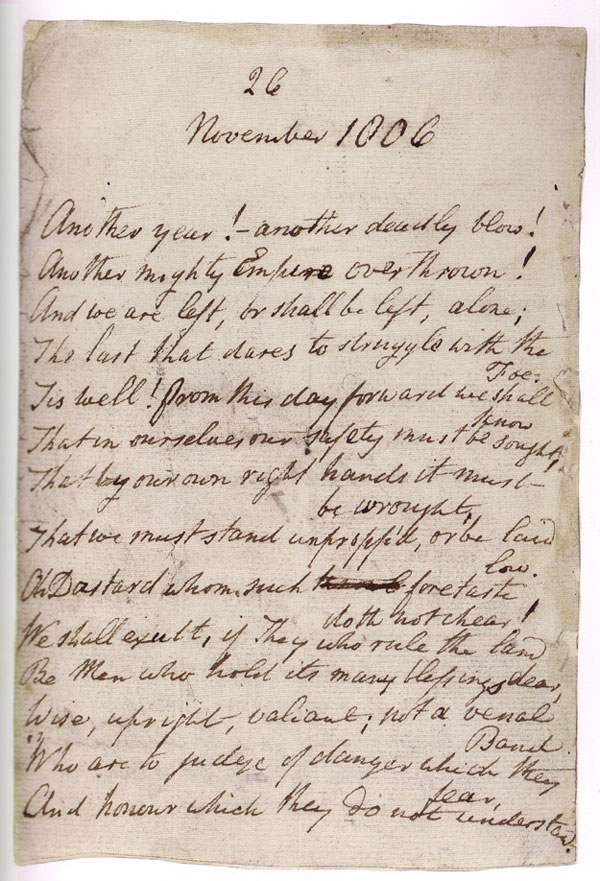 26
November 1806
Another year! - another deadly blow!
Another mighty Empire overthrown!
And we are left, or shall be left, alone;
The last that dares to struggle with the
Foe.
Tis well! from this day forward we shall
know
That in ourselves our safety must be sought,
That by our own right hands it must
be wrought,
That we must stand unpropp'd, or be laid
low.
Oh Dastard whom such foretaste
doth not chear!
We shall exult, if They who rule the land
Be Men who hold its many blessings dear,
Wise, upright, valiant; not a venal
Band
Who are to judge of danger which they
fear,
And honour which they do not understand.